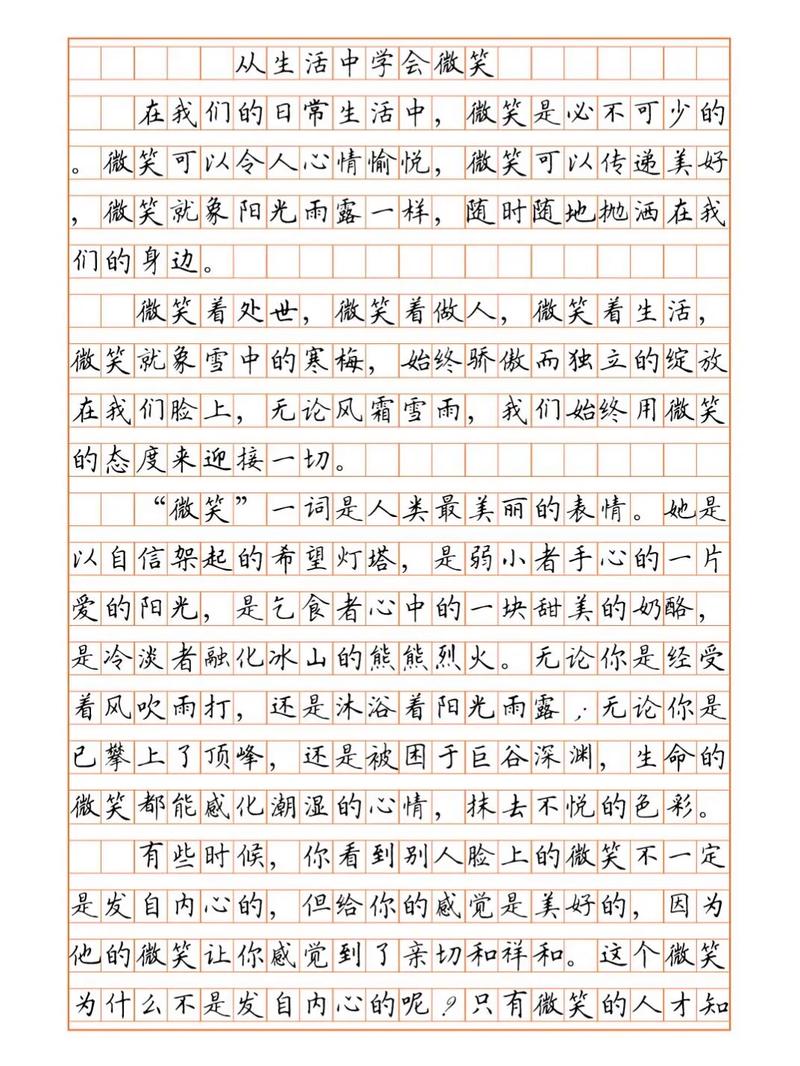 从生活中学会微笑
在我们的日常生活中，微笑是必不可少的
。微笑可以令人心情愉悦，微笑可以传递美好
，微笑就象阳光雨露一样，随时随地抛洒在我
们的身边。
微笑着处世，微笑着做人，微笑着生活，
微笑就象雪中的寒梅，始终骄傲而独立的绽放
在我们脸上，无论风霜雪雨，我们始终用微笑
的态度来迎接一切。
“微笑”一词是人类最美丽的表情。她是
以自信架起的希望灯塔，是弱小者手心的一片
爱的阳光，是乞食者心中的一块甜美的奶酪，
是冷淡者融化冰山的熊熊烈火。无论你是经受
着风吹雨打，还是沐浴着阳光雨露；无论你是
已攀上了顶峰，还是被困于巨谷深渊，生命的
微笑都能感化潮湿的心情，抹去不悦的色彩。
有些时候，你看到别人脸上的微笑不一定
是发自内心的，但给你的感觉是美好的，因为
他的微笑让你感觉到了亲切和祥和。这个微笑
为什么不是发自内心的呢？只有微笑的人才知